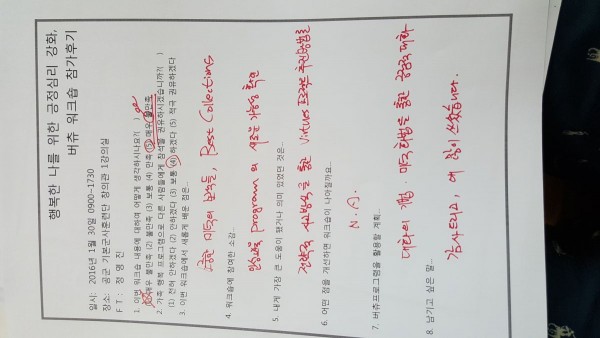 행복한 나를 위한 긍정심리 강화,
버츄 워크숍 참가후기
일시: 2016년 1월 30일 0900~1730
장소: 공군 기본군사훈련단 창의관 1강의실
F T : 장 영 진
1. 이번 워크숍 내용에 대하여 어떻게 생각하시나요? ( )
(1) 매우 불만족 (2) 불만족 (3) 보통 (4) 만족 (5) 매우 불만족
2. 가족 행복 프로그램으로 다른 사람들에게 참석을 권유하시겠습니까? ( )
(1) 전혀 안하겠다 (2) 안하겠다 (3) 보통 (4) 하겠다 (5) 적극 권유하겠다
3. 이번 워크숍에서 새롭게 배운 점은...
미덕의 보석들, Best Collections
4. 워크숍에 참여한 소감...
인성교육 program의 새로운 가능성 확인
5. 내게 가장 큰 도움이 됐거나 의미 있었던 것은...
전략적 사고방식을 통한 Virtues 프로젝트 추진방법론
6. 어떤 점을 개선하면 워크숍이 나아질까요...
N.A.
7. 버츄프로그램을 활용할 계획...
대화의 미덕화법을 통한 긍정적 대화
8. 남기고 싶은 말...
감사드리고, 애 많이 쓰셨습니다.